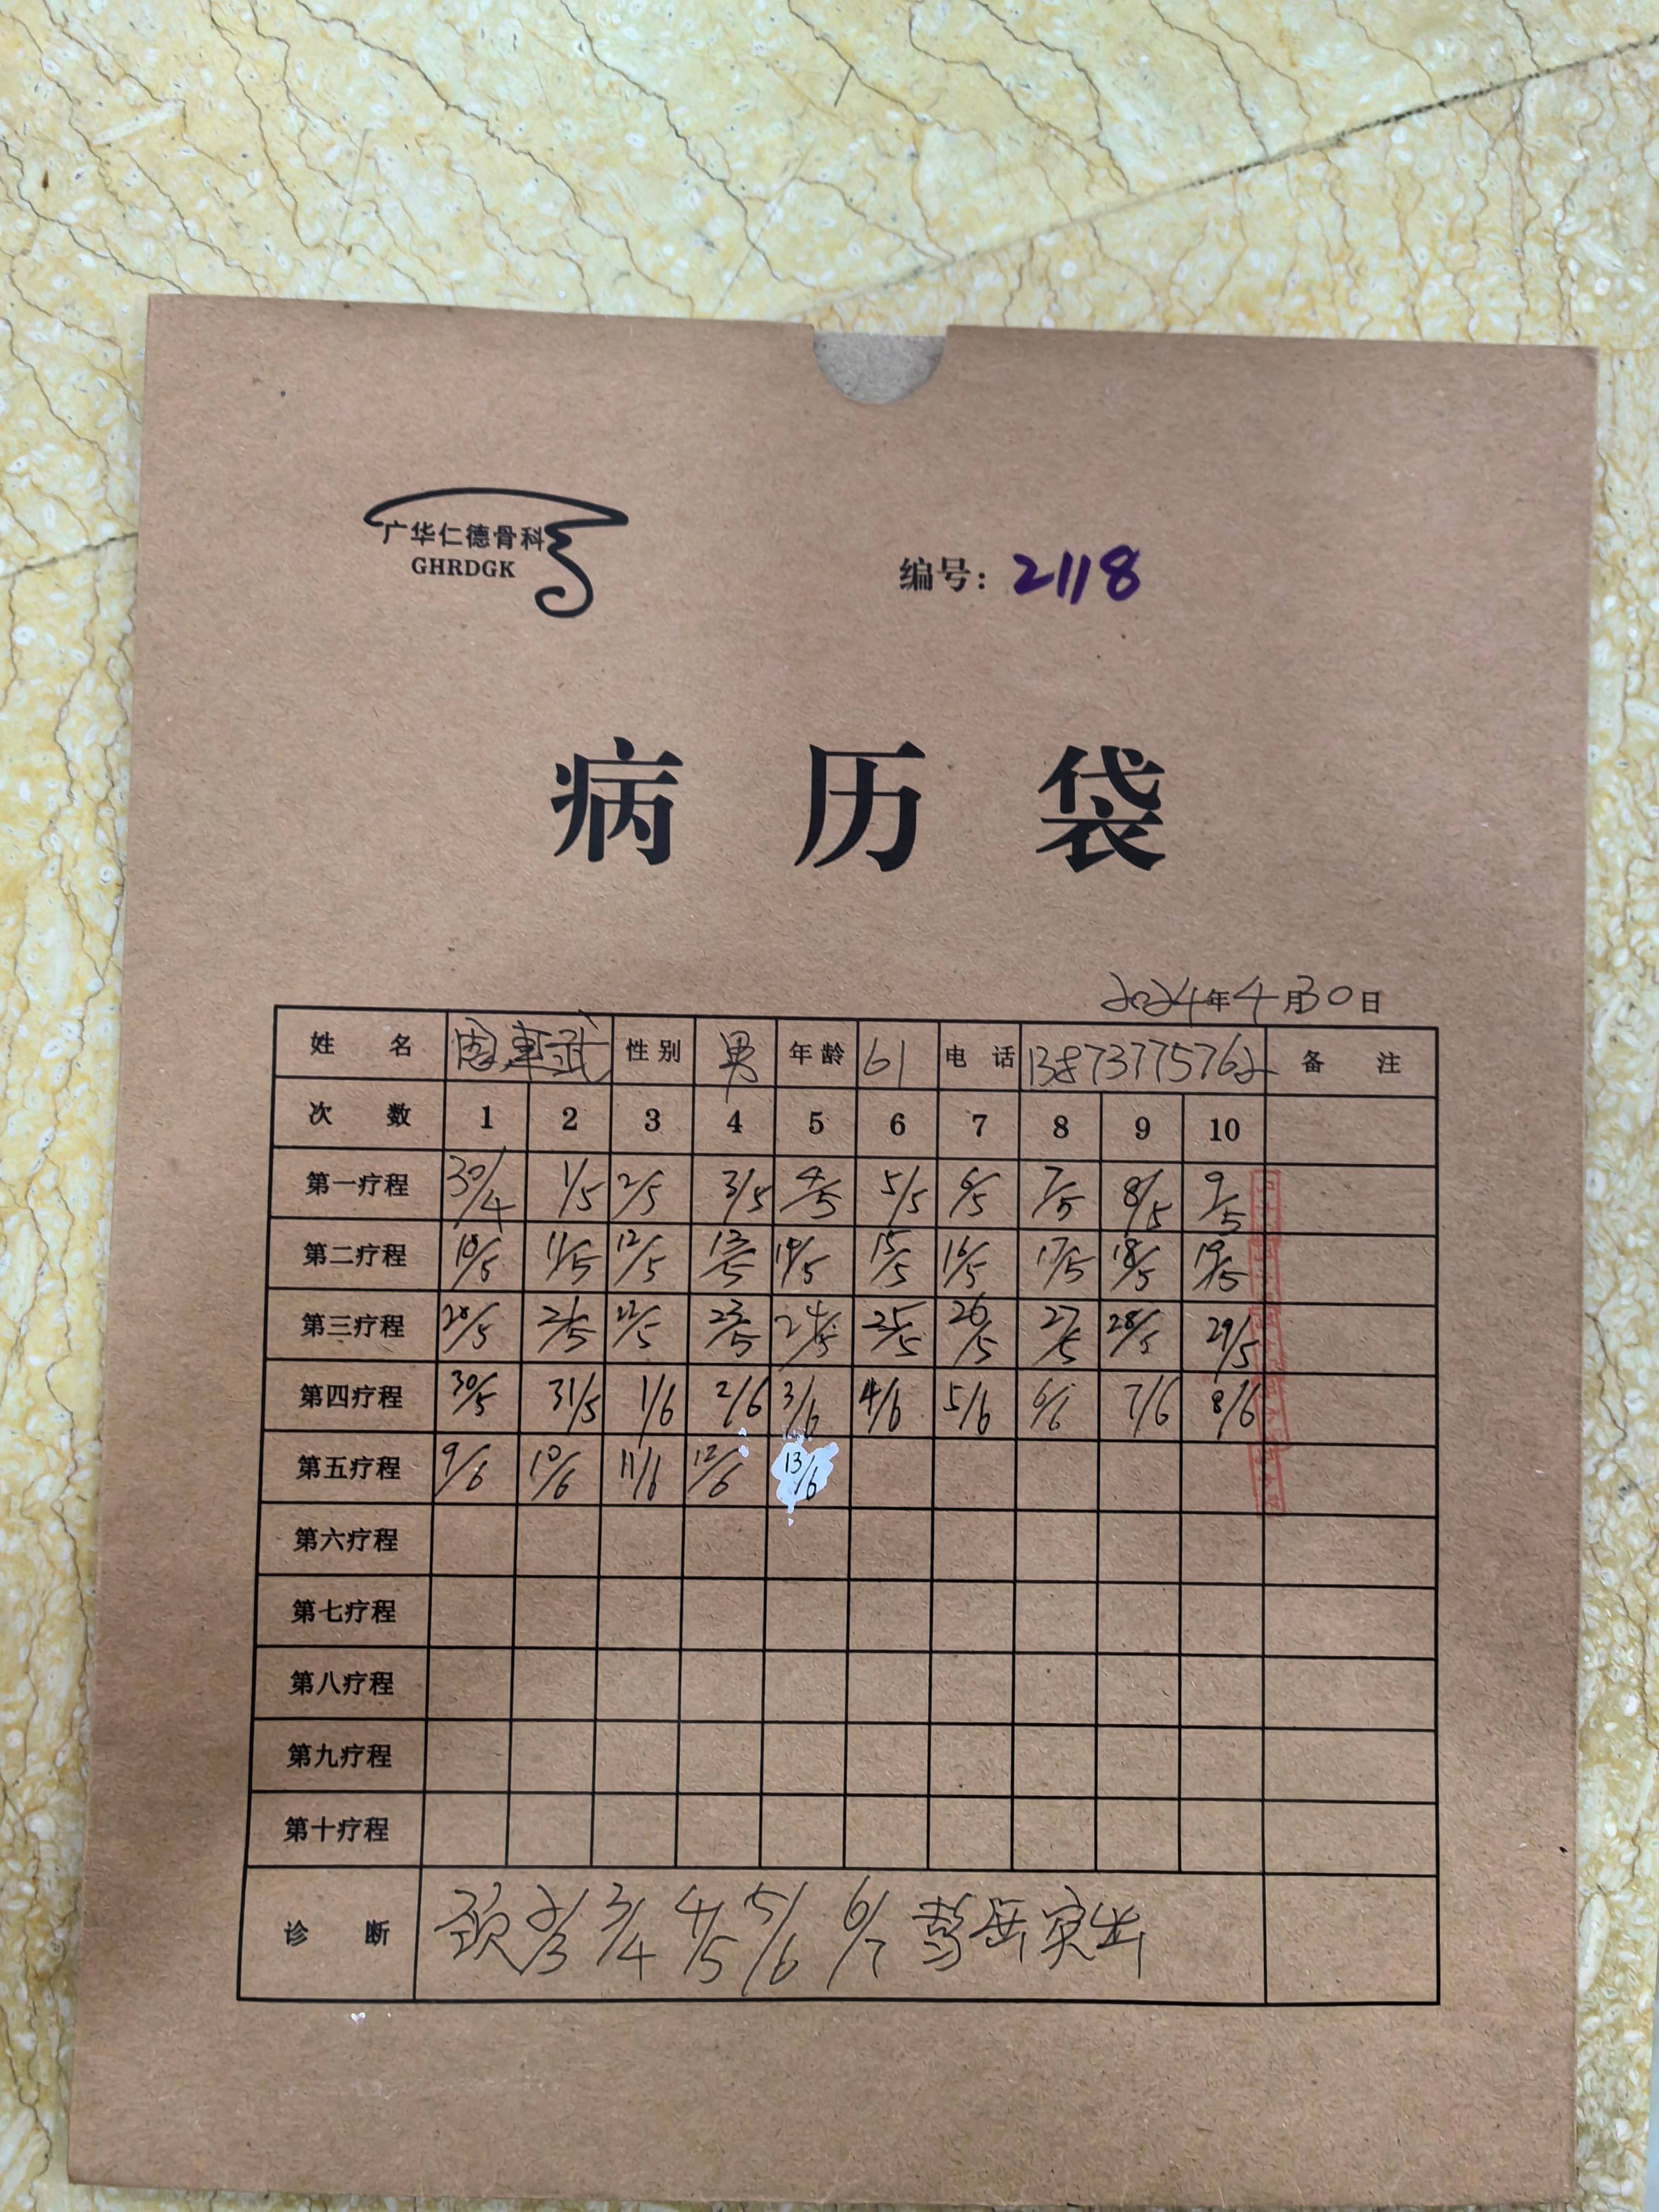 广华仁德骨科
GHRDGK
编号: 2118
病历袋
2024年4月30日
姓名 周 武 性别 男 年龄 61 电话 13873775762 备注
次数 1 2 3 4 5 6 7 8 9 10
第一疗程 30/4 1/5 2/5 3/5 4/5 5/5 6/5 7/5 8/5 9/5
第二疗程 10/5 11/5 12/5 13/5 14/5 15/5 16/5 17/5 18/5 19/5
第三疗程 20/5 21/5 22/5 23/5 24/5 25/5 26/5 27/5 28/5 29/5
第四疗程 30/5 31/5 1/6 2/6 3/6 4/6 5/6 6/6 7/6 8/6
第五疗程 9/6 10/6 11/6 12/6 13/6
第六疗程
第七疗程
第八疗程
第九疗程
第十疗程
诊断 颈2/3 3/4 4/5 5/6 6/7 突出